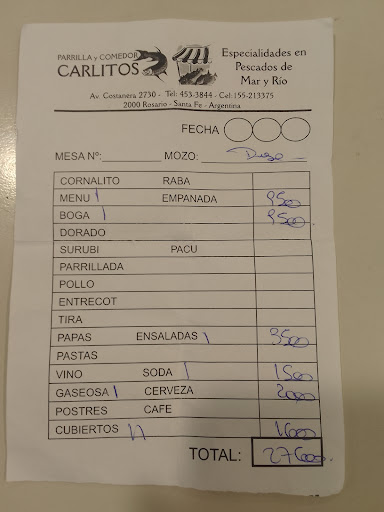 PARRILLA y COMEDOR
CARLITOS
Especialidades en
Pescados de
Mar y Río
Av. Costanera 2730 - Tel: 453-3844 - Cel:155-213375
2000 Rosario - Santa Fe - Argentina
FECHA
MESA Nº: MOZO:
CORNALITO RABA
MENU 1 EMPANADA 9500
BOGA 1 9500
DORADO
SURUBI PACU
PARRILLADA
POLLO
ENTRECOT
TIRA
PAPAS ENSALADAS 1 3500
PASTAS
VINO SODA 1 1500
GASEOSA 1 CERVEZA 2000
POSTRES CAFE
CUBIERTOS 11 1600
TOTAL: 27600